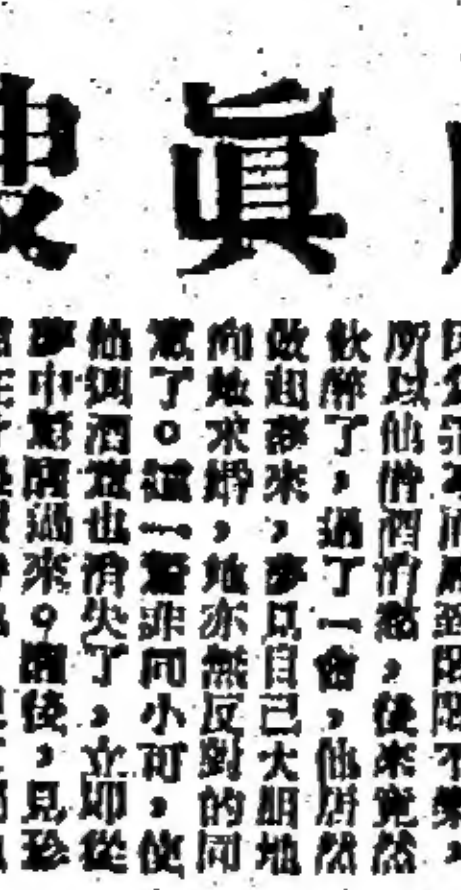 眞
不樂，
所以他借酒消愁，後來竟然
飲醉了，過了一會，他居然
做起夢來，夢見自己大胆地
向她求婚，她亦無反對的同
意了。這一驚非同小可，使
他酒意也消失了，立即從
夢中驚醒過來。醒後，見珍